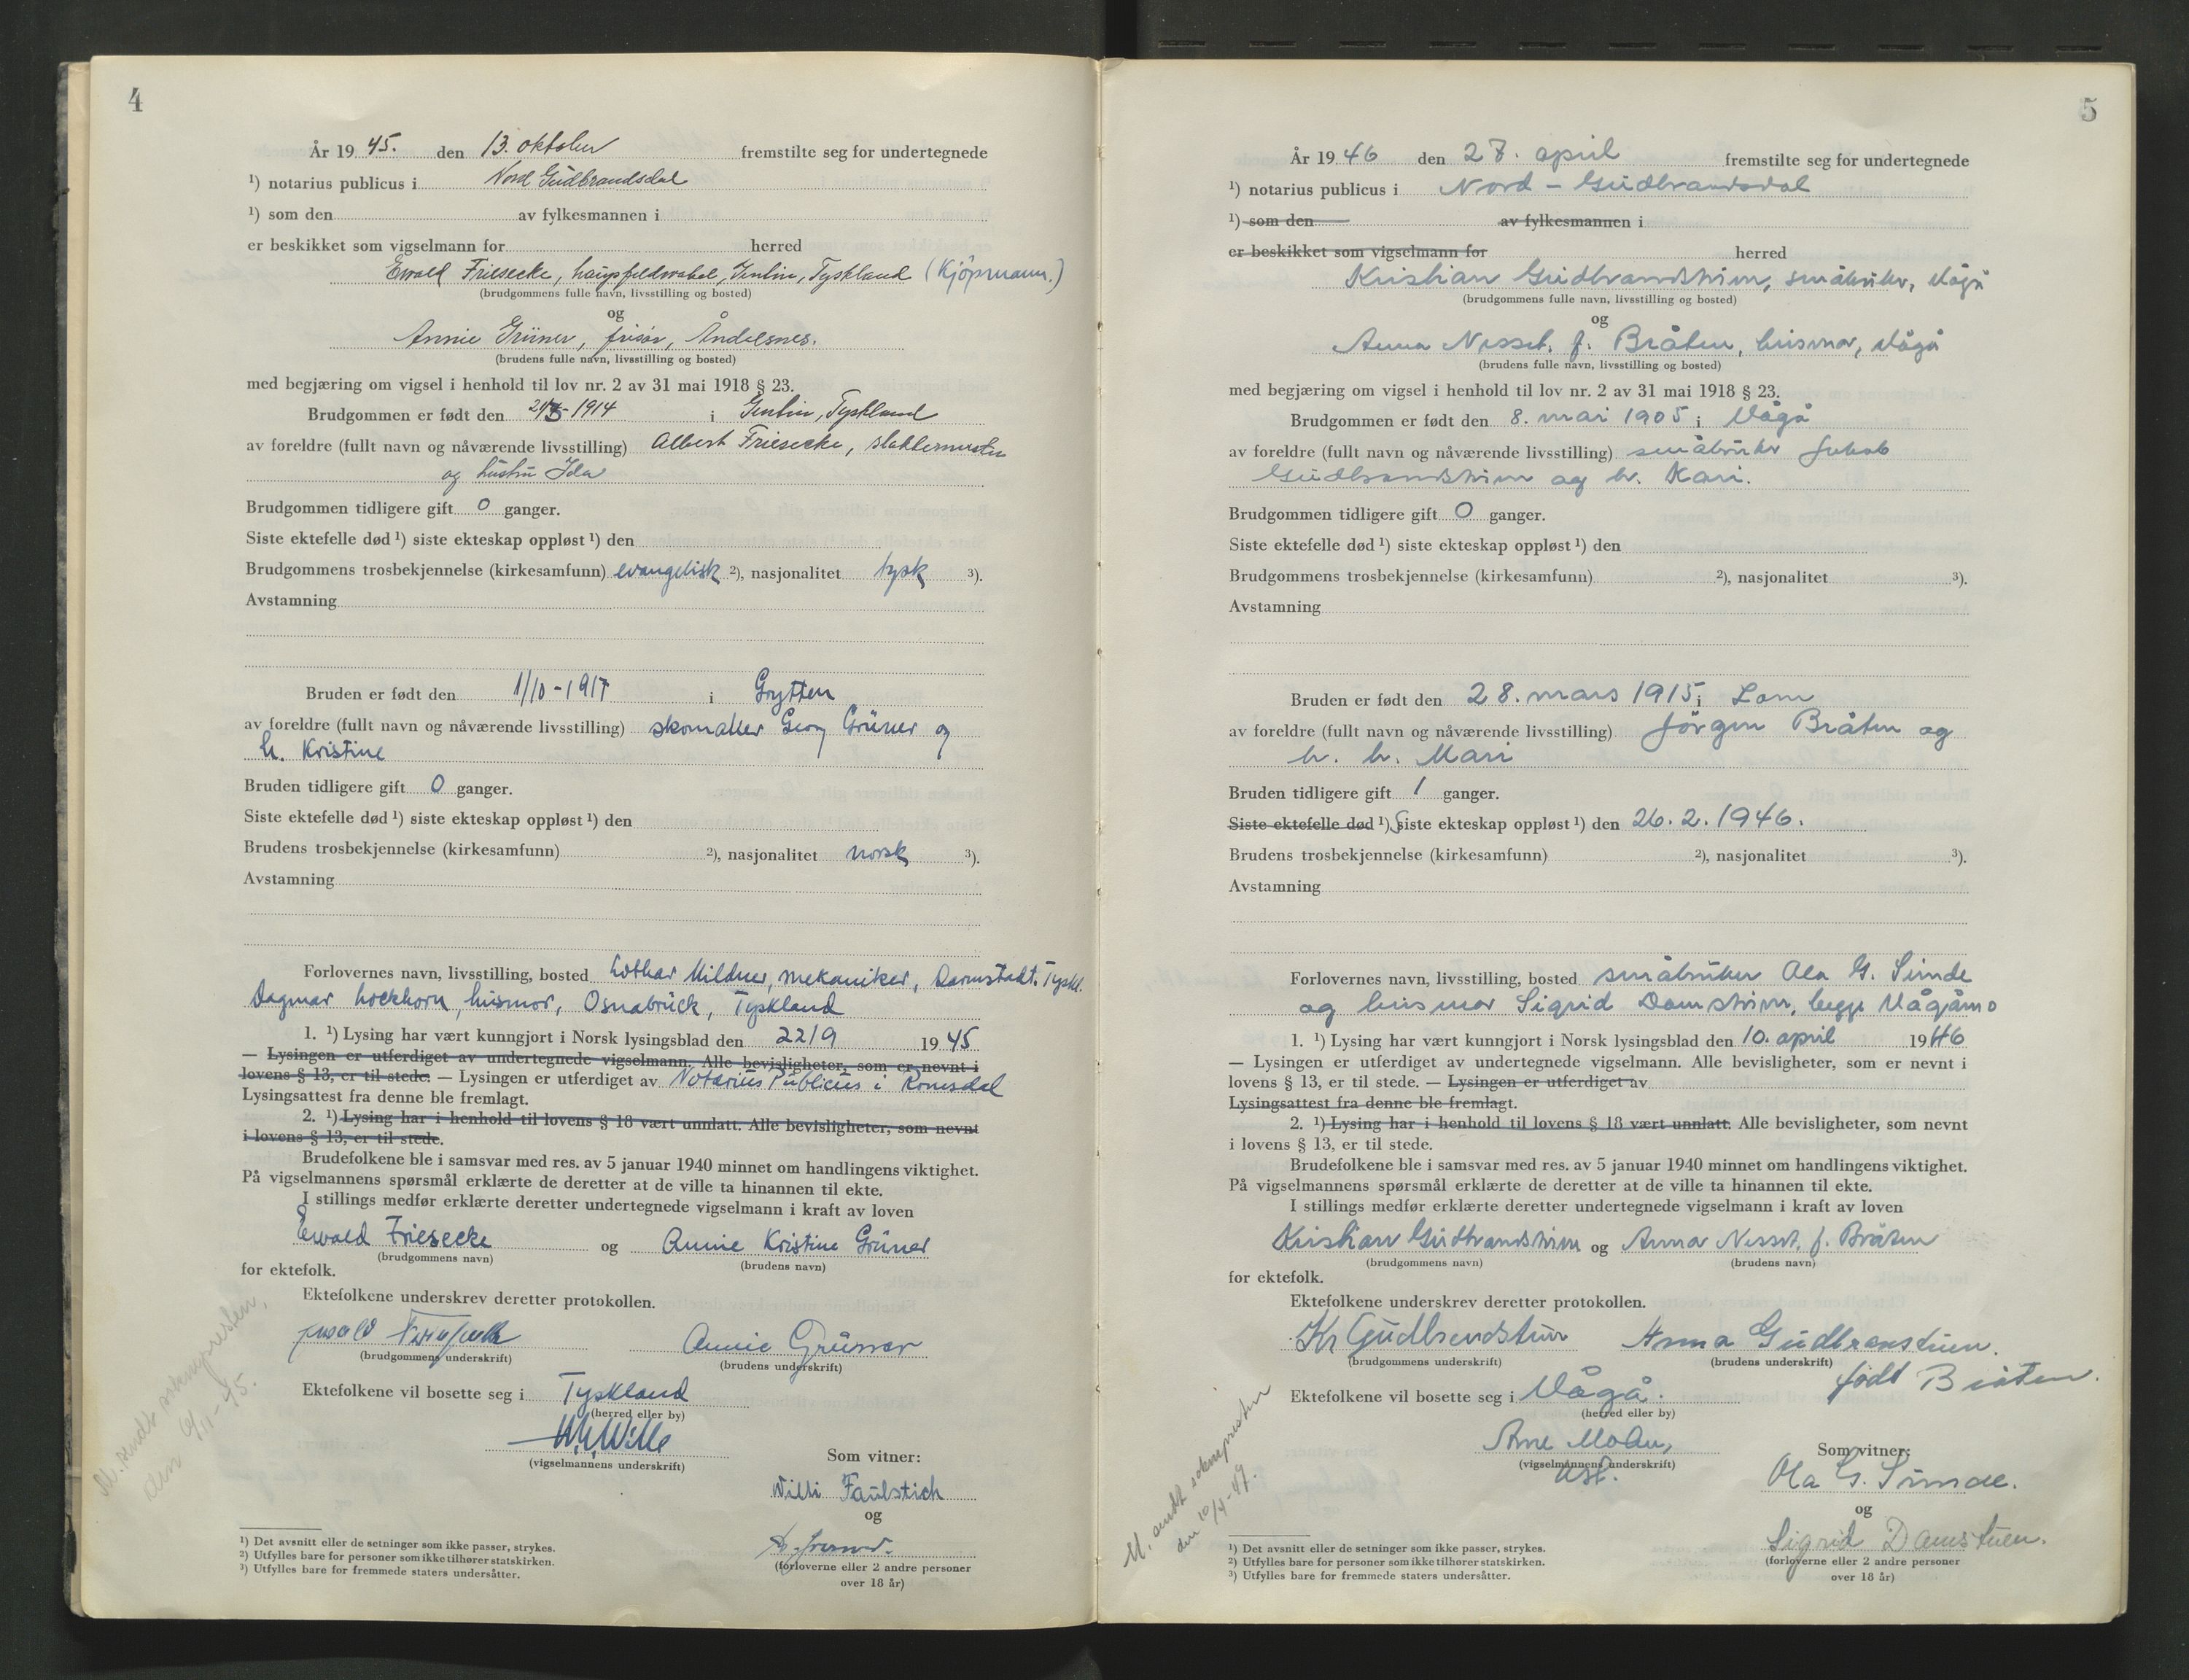 4
År 19 45. den 13. oktober fremstilte seg for undertegnede
¹) notarius publicus i Nord Gudbrandsdal
¹) som den av fylkesmannen i
er beskikket som vigselmann for herred
Ewald Friesecke, Tyskland (Kjöpmann.)
(brudgommens fulle navn, livsstilling og bosted)
og
Annie Grüner, frisør, Åndalsnes.
(brudens fulle navn, livsstilling og bosted)
med begjæring om vigsel i henhold til lov nr. 2 av 31 mai 1918 § 23.
Brudgommen er født den 1914 i Tyskland
av foreldre (fullt navn og nåværende livsstilling) Albert Friesecke,
og hustru Ida
Brudgommen tidligere gift 0 ganger.
Siste ektefelle død ¹) siste ekteskap oppløst ¹) den
Brudgommens trosbekjennelse (kirkesamfunn) evangelisk ²), nasjonalitet tysk ³).
Avstamning
Bruden er født den 1/10-1917 i Grytten
av foreldre (fullt navn og nåværende livsstilling) skomaker Georg Grüner og
h. Kristine
Bruden tidligere gift 0 ganger.
Siste ektefelle død ¹) siste ekteskap oppløst ¹) den
Brudens trosbekjennelse (kirkesamfunn) ²), nasjonalitet norsk ³).
Avstamning
Forlovernes navn, livsstilling, bosted Lothar Mildner, mekaniker, Darmstadt. Tyskl.
Dagmar Hockhorn, husmor, Osnabrück, Tyskland
1. ¹) Lysing har vært kunngjort i Norsk lysingsblad den 22/9 19 45
— Lysingen er utferdiget av undertegnede vigselmann. Alle bevisligheter, som er nevnt i
lovens § 13, er til stede. — Lysingen er utferdiget av Notarius Publicus i Romsdal
Lysingsattest fra denne ble fremlagt.
2. ¹) Lysing har i henhold til lovens § 18 vært unnlatt. Alle bevisligheter, som nevnt
i lovens § 13, er til stede.
Brudefolkene ble i samsvar med res. av 5 januar 1940 minnet om handlingens viktighet.
På vigselmannens spørsmål erklærte de deretter at de ville ta hinannen til ekte.
I stillings medfør erklærte deretter undertegnede vigselmann i kraft av loven
Ewald Friesecke og Annie Kristine Grüner
(brudgommens navn) (brudens navn)
for ektefolk.
Ektefolkene underskrev deretter protokollen.
Ewald Friesecke Annie Grüner
(brudgommens underskrift) (brudens underskrift)
Ektefolkene vil bosette seg i Tyskland
(herred eller by)
(vigselmannens underskrift)
Som vitner:
Willi Faulstich
og
(forloverne eller 2 andre personer
over 18 år)
M. sendt soknepresten,
den 6/11-45.
¹) Det avsnitt eller de setninger som ikke passer, strykes.
²) Utfylles bare for personer som ikke tilhører statskirken.
³) Utfylles bare for fremmede staters undersåtter.
5
År 19 46 den 27. april fremstilte seg for undertegnede
¹) notarius publicus i Nord-Gudbrandsdal
¹) som den av fylkesmannen i
er beskikket som vigselmann for herred
Kristian Gudbrandstuen, småbruker, Vågå
(brudgommens fulle navn, livsstilling og bosted)
og
Anna Nesset, f. Bråten, husmor, Vågå
(brudens fulle navn, livsstilling og bosted)
med begjæring om vigsel i henhold til lov nr. 2 av 31 mai 1918 § 23.
Brudgommen er født den 8. mai 1905 i Vågå
av foreldre (fullt navn og nåværende livsstilling) småbruker Jakob
Gudbrandstuen og h. Kari.
Brudgommen tidligere gift 0 ganger.
Siste ektefelle død ¹) siste ekteskap oppløst ¹) den
Brudgommens trosbekjennelse (kirkesamfunn) ²), nasjonalitet ³).
Avstamning
Bruden er født den 28. mars 1915 i Lom
av foreldre (fullt navn og nåværende livsstilling) Jörgen Bråten og
h. h. Mari
Bruden tidligere gift 1 ganger.
Siste ektefelle død ¹) siste ekteskap oppløst ¹) den 26.2.1946.
Brudens trosbekjennelse (kirkesamfunn) ²), nasjonalitet ³).
Avstamning
Forlovernes navn, livsstilling, bosted småbruker Ola G. Sunde
og husmor Sigrid Damstuen, begge Vågåmo
1. ¹) Lysing har vært kunngjort i Norsk lysingsblad den 10. april 1946
— Lysingen er utferdiget av undertegnede vigselmann. Alle bevisligheter, som er nevnt i
lovens § 13, er til stede. — Lysingen er utferdiget av
Lysingsattest fra denne ble fremlagt.
2. ¹) Lysing har i henhold til lovens § 18 vært unnlatt. Alle bevisligheter, som nevnt
i lovens § 13, er til stede.
Brudefolkene ble i samsvar med res. av 5 januar 1940 minnet om handlingens viktighet.
På vigselmannens spørsmål erklærte de deretter at de ville ta hinannen til ekte.
I stillings medfør erklærte deretter undertegnede vigselmann i kraft av loven
Kristian Gudbrandstuen og Anna Nesset, f. Bråten
(brudgommens navn) (brudens navn)
for ektefolk.
Ektefolkene underskrev deretter protokollen.
Kr Gudbrandstuen Anna Gudbranstuen.
(brudgommens underskrift) (brudens underskrift)
født Bråten.
Ektefolkene vil bosette seg i Vågå.
(herred eller by)
Arne
(vigselmannens underskrift)
Som vitner:
Ola G. Sunde.
og
Sigrid Damstuen.
(forloverne eller 2 andre personer
over 18 år)
M. sendt soknepresten
den 10/4-47.
¹) Det avsnitt eller de setninger som ikke passer, strykes.
²) Utfylles bare for personer som ikke tilhører statskirken.
³) Utfylles bare for fremmede staters undersåtter.